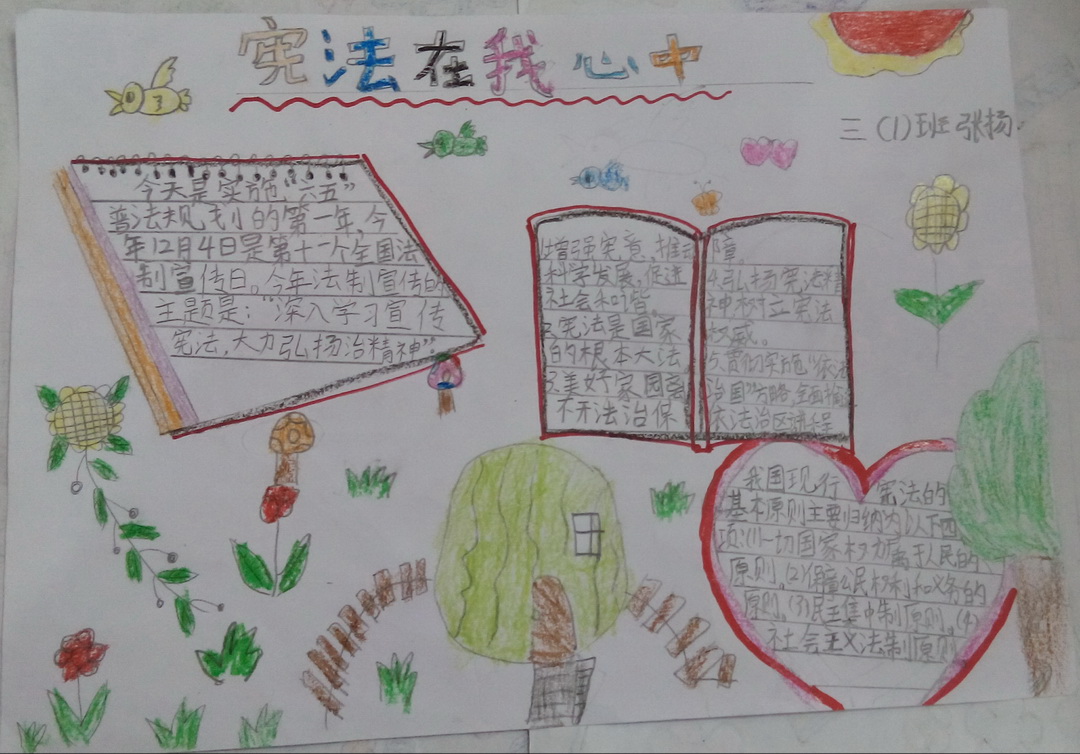 宪法在我心中
三(1)班 张扬
今天是实施“六五”
普法规划的第一年,今
年12月4日是第十一个全国法
制宣传日。今年法制宣传的
主题是:“深入学习宣传
宪法,大力弘扬治精神”
1.增强宪意、推动
科学发展,促进
社会和谐。
2.宪法是国家
的根本大法
3.美好家园离
不开法治保
障。
4.弘扬宪法精
神树立宪法
权威。
5.贯彻实施“依法
治国”方略,全面推进
依法治区进程
我国现行宪法的
基本原则主要归纳为以下四
项:(1)一切国家权力属于人民的
原则。(2)保障公民权利和义务的
原则。(3)民主集中制原则。(4)
社会主义法制原则